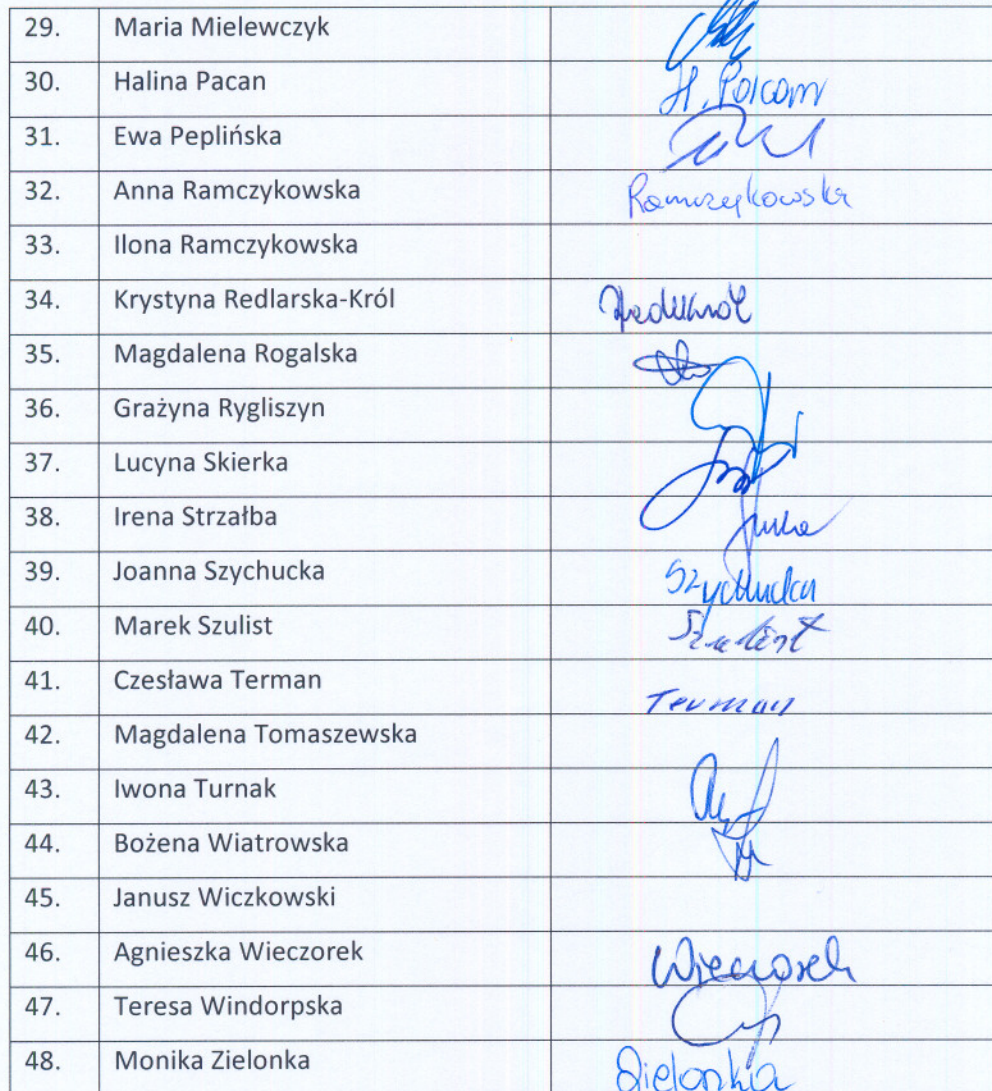 29. Maria Mielewczyk
30. Halina Pacan H. Pacan
31. Ewa Peplińska
32. Anna Ramczykowska Ramczykowska
33. Ilona Ramczykowska
34. Krystyna Redlarska-Król
35. Magdalena Rogalska
36. Grażyna Rygliszyn
37. Lucyna Skierka
38. Irena Strzałba
39. Joanna Szychucka Szychucka
40. Marek Szulist Szulist
41. Czesława Terman Terman
42. Magdalena Tomaszewska
43. Iwona Turnak
44. Bożena Wiatrowska
45. Janusz Wiczkowski
46. Agnieszka Wieczorek Wieczorek
47. Teresa Windorpska
48. Monika Zielonka Zielonka